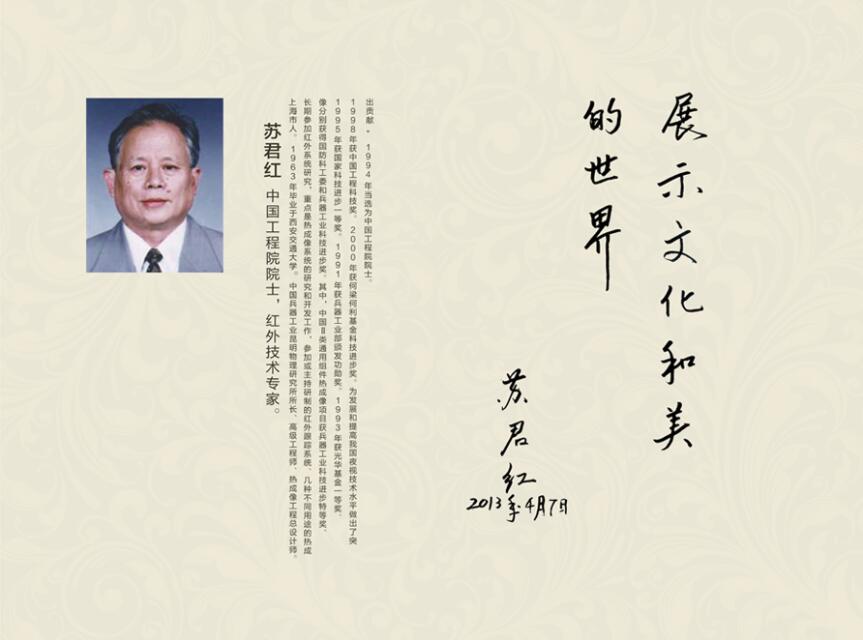 苏君红 中国工程院院士，红外技术专家。
上海市人。1963年毕业于西安交通大学。中国兵器工业昆明物理研究所所长、高级工程师、热成像工程总设计师。
长期参加红外系统研究，重点是热成像系统的研究和开发工作，参加或主持研制的红外跟踪系统、几种不同用途的热成
像分别获得国防科工委和兵器工业科技进步奖。其中，中国Ⅱ类通用组件热成像项目获兵器工业科技进步特等奖、
1995年获国家科技进步一等奖。1991年获兵器工业部颁发功勋奖。1993年获光华基金一等奖、
1998年获中国工程科技奖。2000年获何梁何利基金科技进步奖。为发展和提高我国夜视技术水平做出了突
出贡献。1994年当选为中国工程院院士。
展示文化和美
的世界
苏君红
2013年4月7日